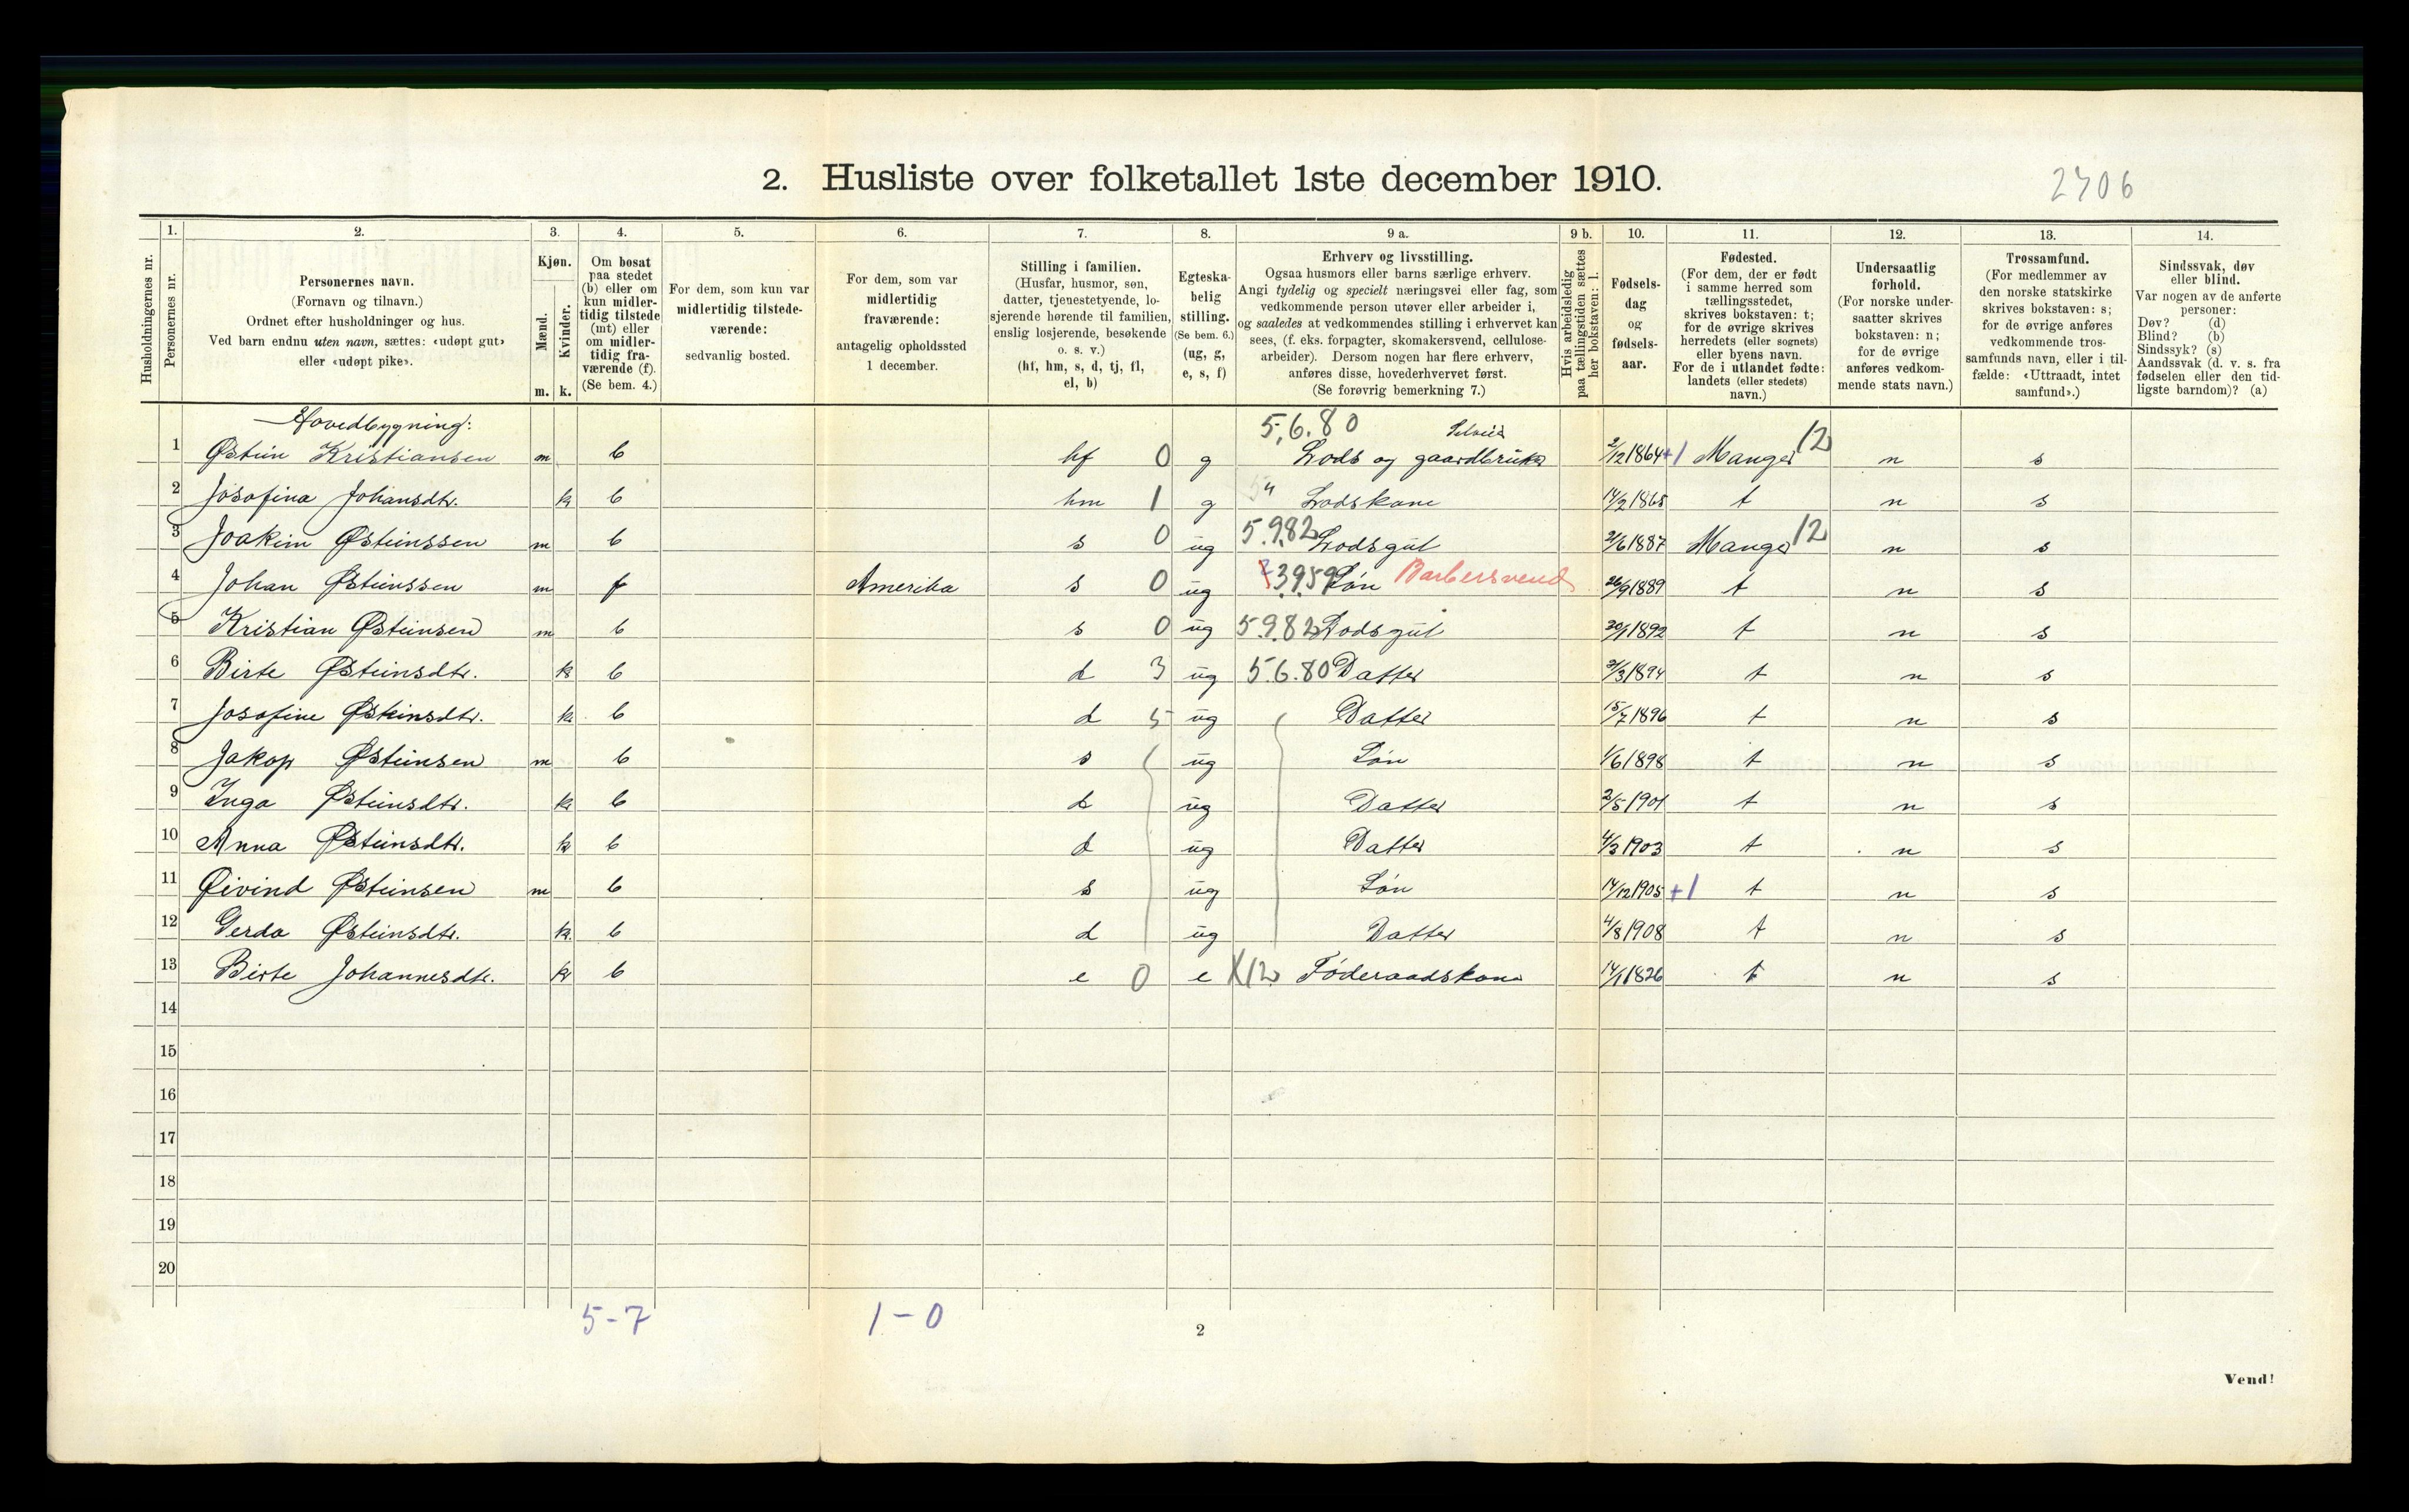 2. Husliste over folketallet 1ste december 1910.
2706
Husholdningernes nr.
1. Personernes nr.
2. Personernes navn.
(Fornavn og tilnavn.)
Ordnet efter husholdninger og hus.
Ved barn endnu uten navn, sættes: «udøpt gut»
eller «udøpt pike».
3. Kjøn.
Mænd. m.
Kvinder. k.
4. Om bosat
paa stedet
(b) eller om
kun midler-
tidig tilstede
(mt) eller
om midler-
tidig fra-
værende (f).
(Se bem. 4.)
5. For dem, som kun var
midlertidig tilstede-
værende:
sedvanlig bosted.
6. For dem, som var
midlertidig
fraværende:
antagelig opholdssted
1 december.
7. Stilling i familien.
(Husfar, husmor, søn,
datter, tjenestetyende, lo-
sjerende hørende til familien,
enslig losjerende, besøkende
o. s. v.)
(hf, hm, s, d, tj, fl,
el, b)
8. Egteska-
belig
stilling.
(Se bem. 6.)
(ug, g,
e, s, f)
9 a. Erhverv og livsstilling.
Ogsaa husmors eller barns særlige erhverv.
Angi tydelig og specielt næringsvei eller fag, som
vedkommende person utøver eller arbeider i,
og saaledes at vedkommendes stilling i erhvervet kan
sees, (f. eks. forpagter, skomakersvend, cellulose-
arbeider). Dersom nogen har flere erhverv,
anføres disse, hovederhvervet først.
(Se forøvrig bemerkning 7.)
9 b. Hvis arbeidsledig
paa tællingstiden sættes
her bokstaven: l.
10. Fødsels-
dag
og
fødsels-
aar.
11. Fødested.
(For dem, der er født
i samme herred som
tællingsstedet,
skrives bokstaven: t;
for de øvrige skrives
herredets (eller sognets)
eller byens navn.
For de i utlandet fødte:
landets (eller stedets)
navn.)
12. Undersaatlig
forhold.
(For norske under-
saatter skrives
bokstaven: n;
for de øvrige
anføres vedkom-
mende stats navn.)
13. Trossamfund.
(For medlemmer av
den norske statskirke
skrives bokstaven: s;
for de øvrige anføres
vedkommende tros-
samfunds navn, eller i til-
fælde: «Uttraadt, intet
samfund».)
14. Sindssvak, døv
eller blind.
Var nogen av de anførte
personer:
Døv? (d)
Blind? (b)
Sindssyk? (s)
Aandssvak (d. v. s. fra
fødselen eller den tid-
ligste barndom)? (a)
Hovedbygning: 5.6.80 Selveier
1 Østein Kristiansen m b hf 0 g Lods og gaardbruker 2/12 1864 +1 Manger 12 n s
2 Josofina Johansdtr. k b hm 1 g " Lodskone 14/2 1865 t n s
3 Joakim Østeinssen m b s 0 ug 5.9.82 Lodsgut 2/6 1887 Manger 12 n s
4 Johan Østeinssen m f Amerika s 0 ug 3959 Søn Barbersvend 26/9 1889 t n s
5 Kristian Østeinsen m b s 0 ug 5.9.82 Lodsgut 20/1 1892 t n s
6 Birte Østeinsdtr. k b d 3 ug 5.6.80 Datter 31/3 1894 t n s
7 Josofine Østeinsdtr. k b d 5 ug Datter 15/7 1896 t n s
8 Jakop Østeinsen m b s ug Søn 1/6 1898 t n s
9 Inga Østeinsdtr. k b d ug Datter 2/5 1901 t n s
10 Anna Østeinsdtr. k b d ug Datter 4/3 1903 t n s
11 Øivind Østeinsen m b s ug Søn 14/12 1905 +1 t n s
12 Gerda Østeinsdtr. k b d ug Datter 4/8 1908 t n s
13 Birte Johannesdtr. k b e 0 e X12 Föderaadskone 14/1 1826 t n s
14
15
16
17
18
19
20
5-7 1-0
2
Vend!